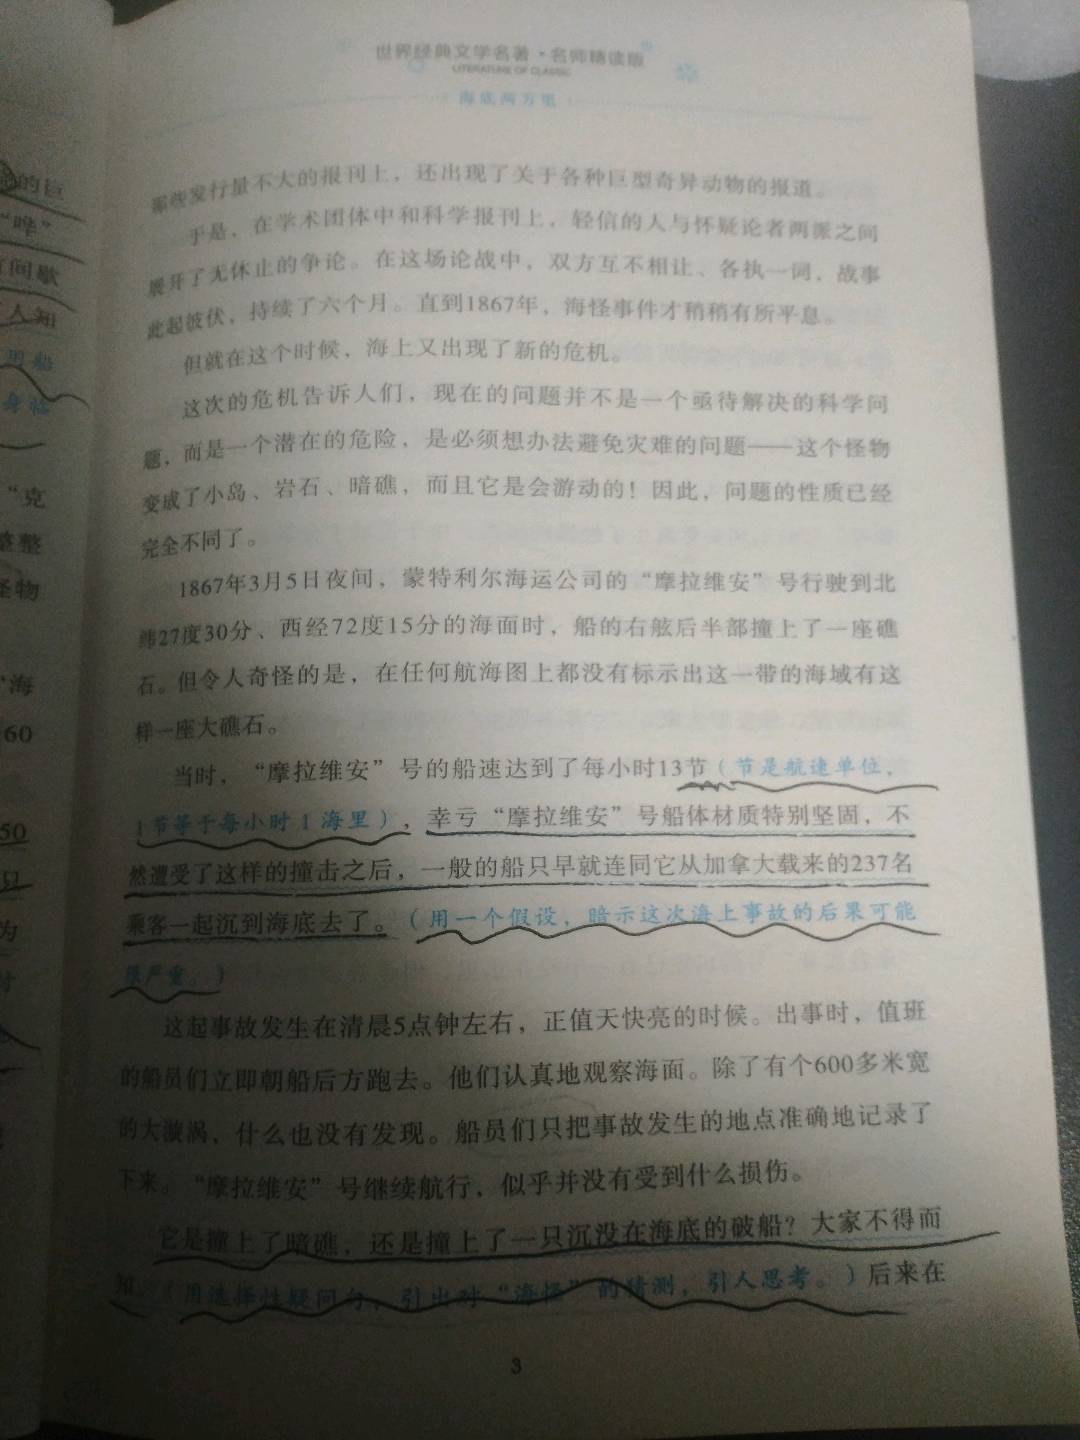 世界经典文学名著·名师精读版
LITERATURE OF CLASSIC
海底两万里
那些发行量不大的报刊上，还出现了关于各种巨型奇异动物的报道。
于是，在学术团体中和科学报刊上，轻信的人与怀疑论者两派之间
展开了无休止的争论。在这场论战中，双方互不相让、各执一词，战事
此起彼伏，持续了六个月。直到1867年，海怪事件才稍稍有所平息。
但就在这个时候，海上又出现了新的危机。
这次的危机告诉人们，现在的问题并不是一个亟待解决的科学问
题，而是一个潜在的危险，是必须想办法避免灾难的问题——这个怪物
变成了小岛、岩石、暗礁，而且它是会游动的！因此，问题的性质已经
完全不同了。
1867年3月5日夜间，蒙特利尔海运公司的“摩拉维安”号行驶到北
纬27度30分、西经72度15分的海面时，船的右舷后半部撞上了一座礁
石。但令人奇怪的是，在任何航海图上都没有标示出这一带的海域有这
样一座大礁石。
当时，“摩拉维安”号的船速达到了每小时13节（节是航速单位，
1节等于每小时1海里），幸亏“摩拉维安”号船体材质特别坚固，不
然遭受了这样的撞击之后，一般的船只早就连同它从加拿大载来的237名
乘客一起沉到海底去了。（用一个假设，暗示这次海上事故的后果可能
很严重。）
这起事故发生在清晨5点钟左右，正值天快亮的时候。出事时，值班
的船员们立即朝船后方跑去。他们认真地观察海面。除了有个600多米宽
的大漩涡，什么也没有发现。船员们只把事故发生的地点准确地记录了
下来。“摩拉维安”号继续航行，似乎并没有受到什么损伤。
它是撞上了暗礁，还是撞上了一只沉没在海底的破船？大家不得而
知。（用选择性疑问句，引出对“海怪”的猜测，引人思考。）后来在
3
的巨
“哗”
间歇
人知
用船
身临
“克
整整
怪物
海
60
50
只
为